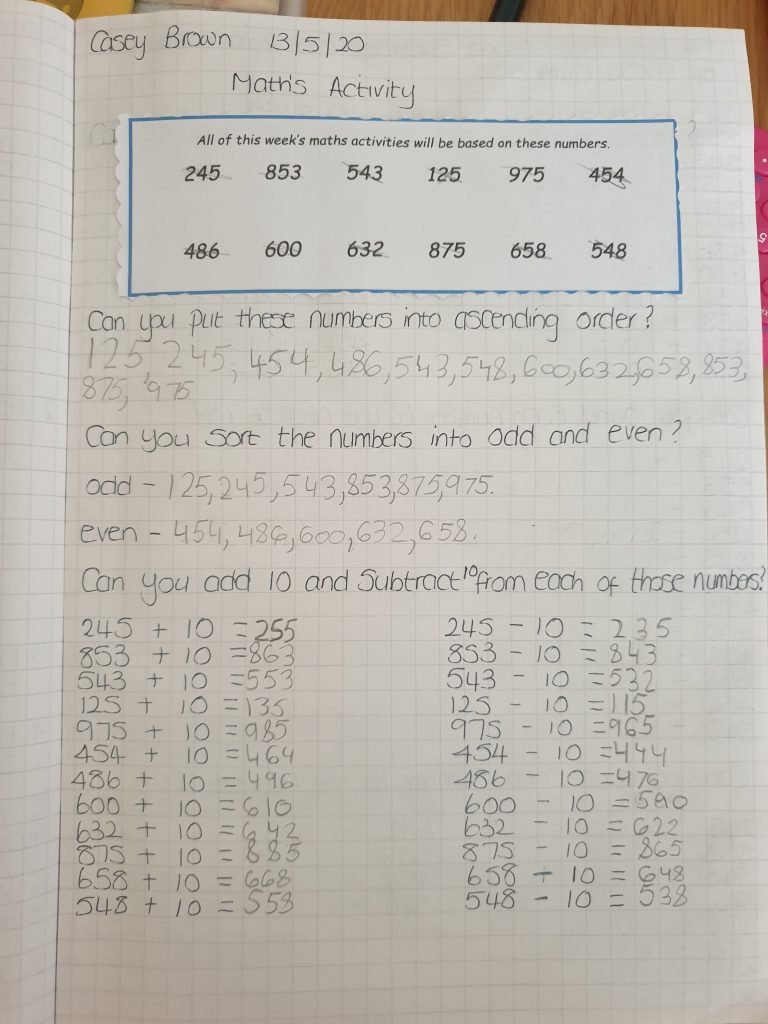 Casey Brown 13/5/20
Maths Activity
All of this week's maths activities will be based on these numbers.
245 853 543 125 975 454
486 600 632 875 658 548
Can you put these numbers into ascending order?
125, 245, 454, 486, 543, 548, 600, 632, 658, 853,
875, 975
Can you sort the numbers into odd and even?
odd - 125, 245, 543, 853, 875, 975.
even - 454, 486, 600, 632, 658.
Can you add 10 and Subtract 10 from each of those numbers?
245 + 10 = 255 245 - 10 = 235
853 + 10 = 863 853 - 10 = 843
543 + 10 = 553 543 - 10 = 532
125 + 10 = 135 125 - 10 = 115
975 + 10 = 985 975 - 10 = 965
454 + 10 = 464 454 - 10 = 444
486 + 10 = 496 486 - 10 = 476
600 + 10 = 610 600 - 10 = 590
632 + 10 = 642 632 - 10 = 622
875 + 10 = 885 875 - 10 = 865
658 + 10 = 668 658 - 10 = 648
548 + 10 = 558 548 - 10 = 538